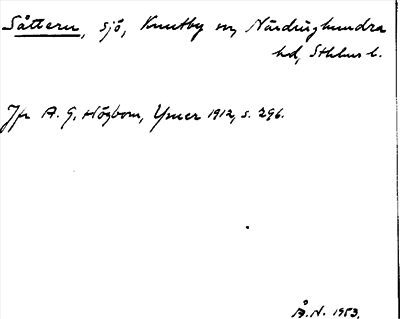 Såttern, sjö, Knutby sn, Närdinghundra
hd, Sthlms l.
Jfr A. G. Högbom, Ymer 1912, s. 296.
Å.N. 1953.